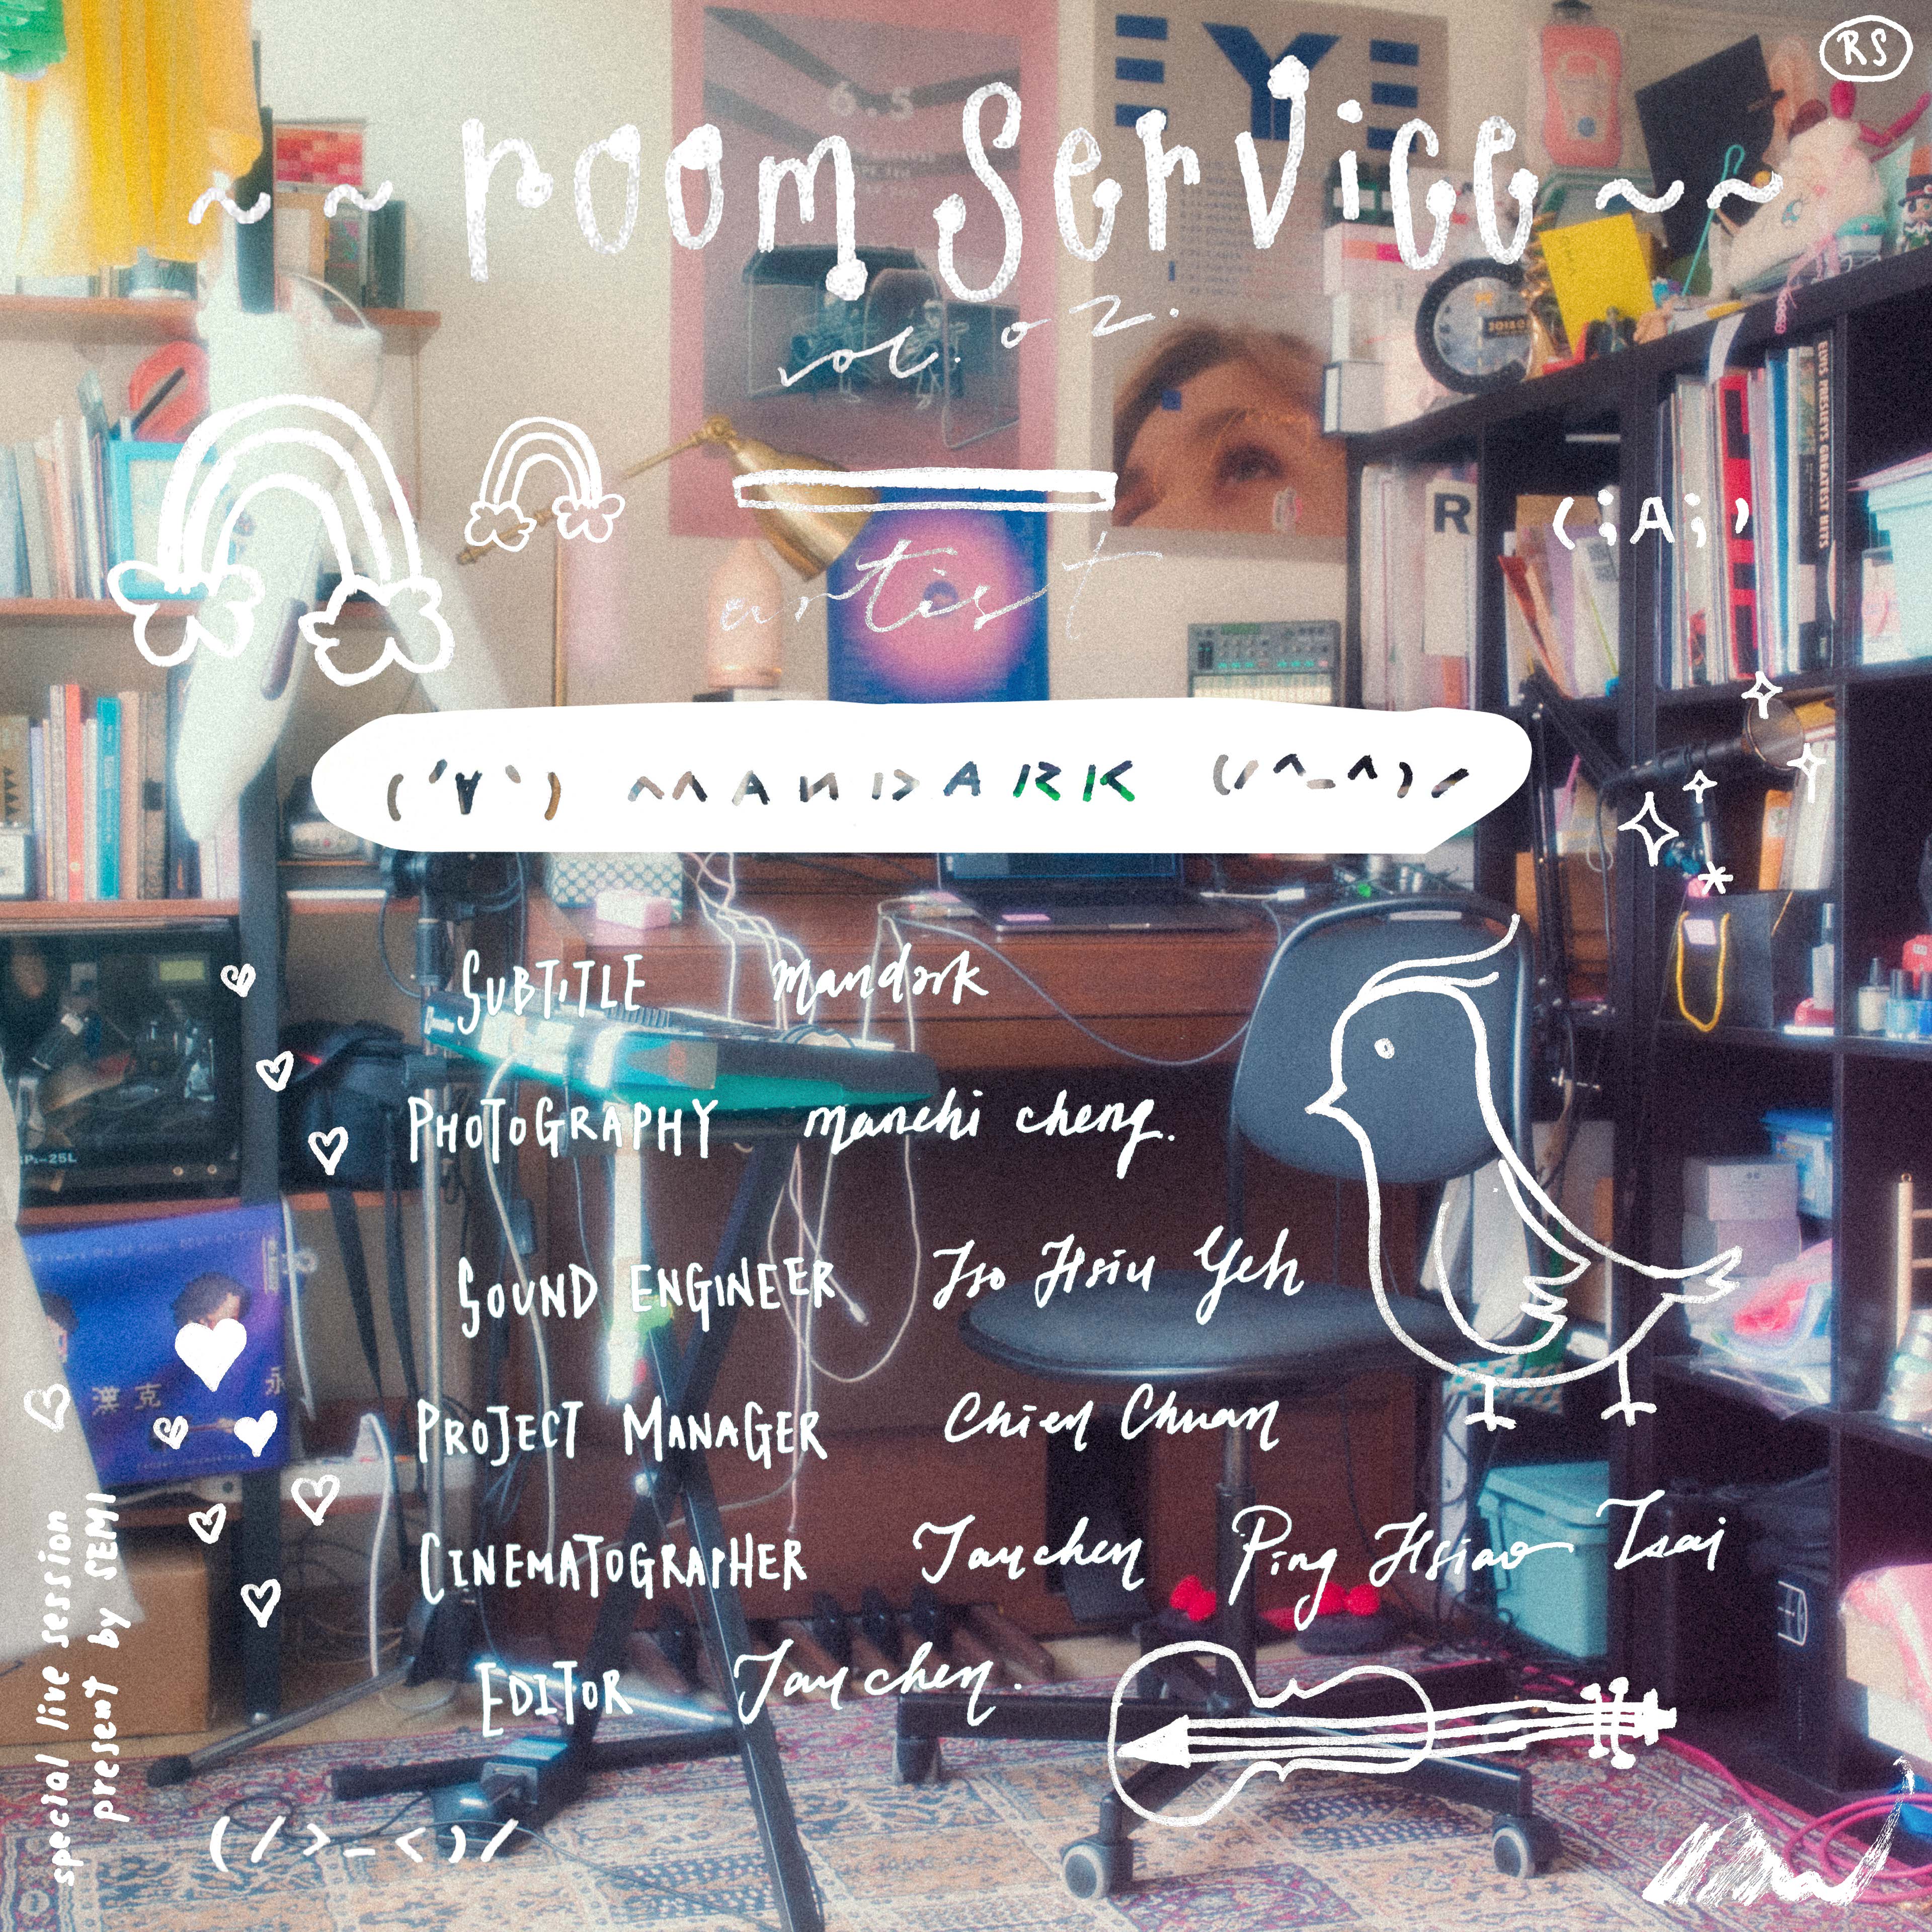 RS
EYE
6.5
~~ room service ~~
vol. 02.
ELVIS PRESLEY'S GREATEST HITS
R
(;A;)
artist
('∀`) MANDARK (/^_^)/
SUBTITLE mandark
PHOTOGRAPHY manchi cheng.
SOUND ENGINEER Tso Hsiu Yeh
PROJECT MANAGER Chien Chuan
CINEMATOGRAPHER Tauchen Ping Hsiao Tsai
EDITOR Tauchen.
漢克
永
special live session
present by SEMI
(/>_<)/